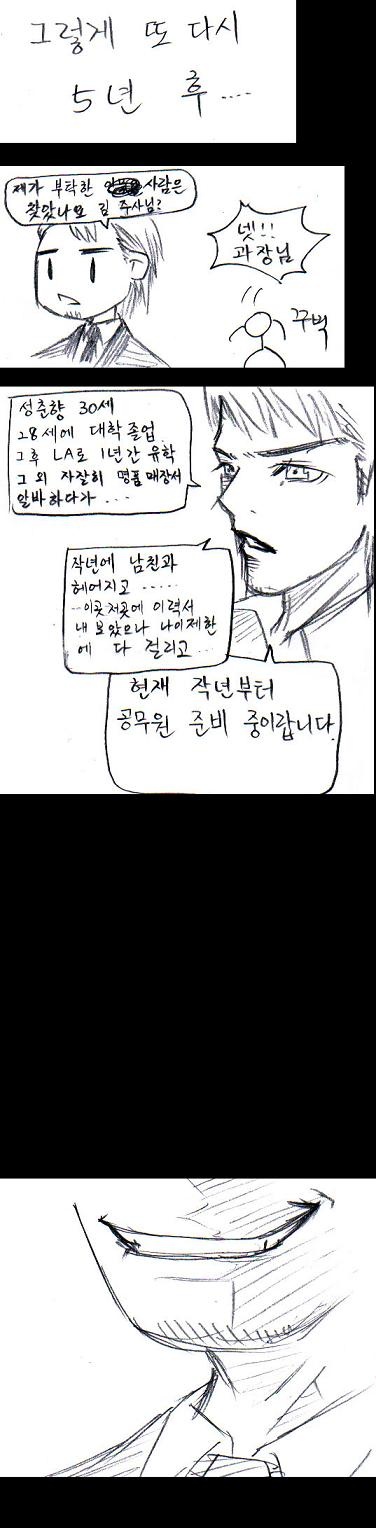 그렇게 또 다시
5년 후....
제가 부탁한 사람은
찾았나요 김 주사님?
넷!!
과장님
꾸벅
성춘향 30세
28세에 대학 졸업
그후 LA로 1년간 유학
그 외 자잘히 명품매장서
알바하다가 ...
작년에 남친과
헤어지고 .....
...이곳저곳에 이력서
내 보았으나 나이제한
에 다 걸리고...
현재 작년부터
공무원 준비 중이랍니다.